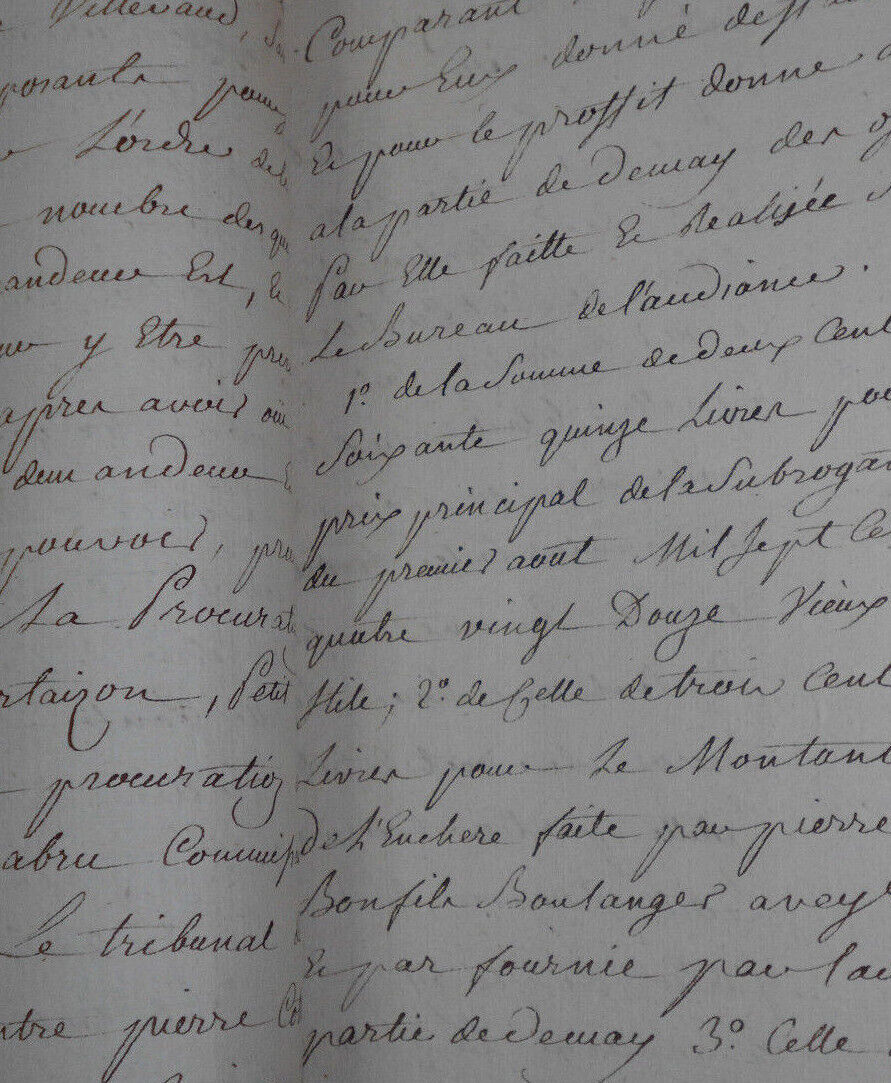 Villevaud,
posante pour
L'ordre de
nombre des qu
andeur Est, &
y Etre pre
apres avoir oui
demandeur
pouvoir, pro
La Procurat
rtaizon, Petit
procuration
abru Commiss
Le tribunal
ntre pierre
Comparant
pour Eux donné deff
Et pour le proffit donne
a la partie de demay des
Par Elle faitte Et Realisée
Le Bureau de l'audiance.
1º. de la Somme de deux Cent
Soixante quinze Livres pou
prix principal de la Subrogan
du premier aout Mil Sept Ce
quatre vingt Douze Vieux
Stile; 2º. de Celle de trois Cent
Livres pour Le Montant
de L'Enchere faite par pierre
Bonfils Boulanger a vey
Et par fournie par lad
partie de demay 3º. Celle